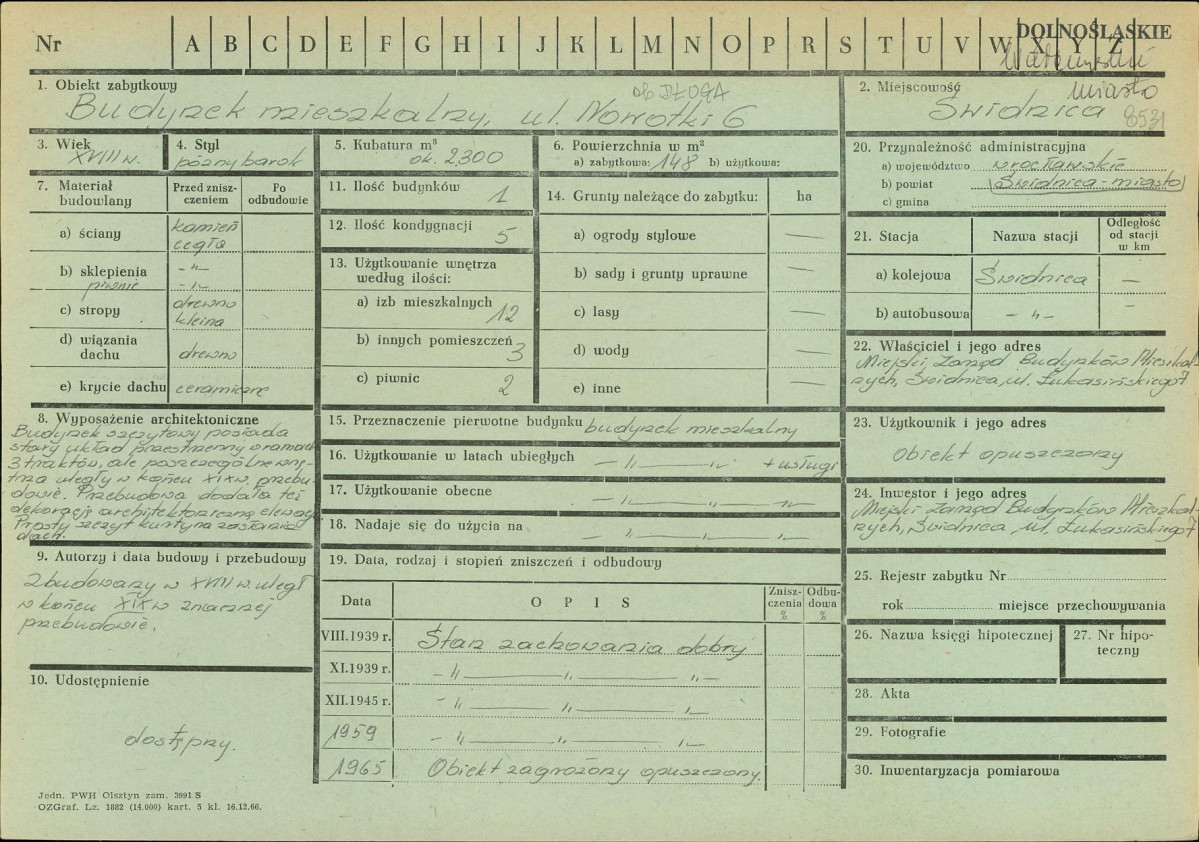 Nr A B C D E F G H I J K L M N O P R S T U V W X Y Z
DOLNOŚLĄSKIE
miasto
1. Obiekt zabytkowy
ob. DŁUGA
Budynek mieszkalny, ul. Nowotki 6
2. Miejscowość
Świdnica 8531
3. Wiek
XVIII w.
4. Styl
późny barok
5. Kubatura m³
ok. 2,300
6. Powierzchnia w m²
a) zabytkowa: 148 b) użytkowa:
7. Materiał budowlany
Przed zniszczeniem
Po odbudowie
a) ściany kamień cegła
b) sklepienia piwnic -"- -"-
c) stropy drewno kleina
d) wiązania dachu drewno
e) krycie dachu ceramiczne
8. Wyposażenie architektoniczne
Budynek szczytowy posiada
stary układ przestrzenny w ramach
3 traktów, ale poszczególne wnę-
trza uległy w końcu XIX w. przebu-
dowie. Przebudowa dodała też
dekorację architektoniczną elewacji
Prosty szczyt kurtyna zasłania
dach.
9. Autorzy i data budowy i przebudowy
Zbudowany w XVIII w. uległ
w końcu XIX w znacznej
przebudowie.
10. Udostępnienie
dostępny.
11. Ilość budynków 1
12. Ilość kondygnacji 5
13. Użytkowanie wnętrza
według ilości:
a) izb mieszkalnych 12
b) innych pomieszczeń 3
c) piwnic 2
14. Grunty należące do zabytku: ha
a) ogrody stylowe —
b) sady i grunty uprawne —
c) lasy —
d) wody —
e) inne —
15. Przeznaczenie pierwotne budynku budynek mieszkalny
16. Użytkowanie w latach ubiegłych — " — " — + usługi
17. Użytkowanie obecne — " — " —
18. Nadaje się do użycia na — " — " —
19. Data, rodzaj i stopień zniszczeń i odbudowy
Data OPIS Zniszczenia % Odbudowa %
VIII.1939 r. Stan zachowania dobry
XI.1939 r. - " — " — " —
XII.1945 r. - " — " — " —
1959 - " — " — " —
1965 Obiekt zagrożony opuszczony.
20. Przynależność administracyjna
a) województwo wrocławskie
b) powiat (Świdnica-miasto)
c) gmina
21. Stacja Nazwa stacji Odległość od stacji w km
a) kolejowa Świdnica —
b) autobusowa - " - -
22. Właściciel i jego adres
Miejski Zarząd Budynków Mieszkal-
nych, Świdnica, ul. Łukasińskiego 7
23. Użytkownik i jego adres
Obiekt opuszczony
24. Inwestor i jego adres
Miejski Zarząd Budynków Mieszkal-
nych, Świdnica, ul. Łukasińskiego 7
25. Rejestr zabytku Nr
rok miejsce przechowywania
26. Nazwa księgi hipotecznej
27. Nr hipoteczny
28. Akta
29. Fotografie
30. Inwentaryzacja pomiarowa
Jedn. PWH Olsztyn zam. 3991 S
OZGraf. Lz. 1882 (14.000) kart. 5 kl. 16.12.66.